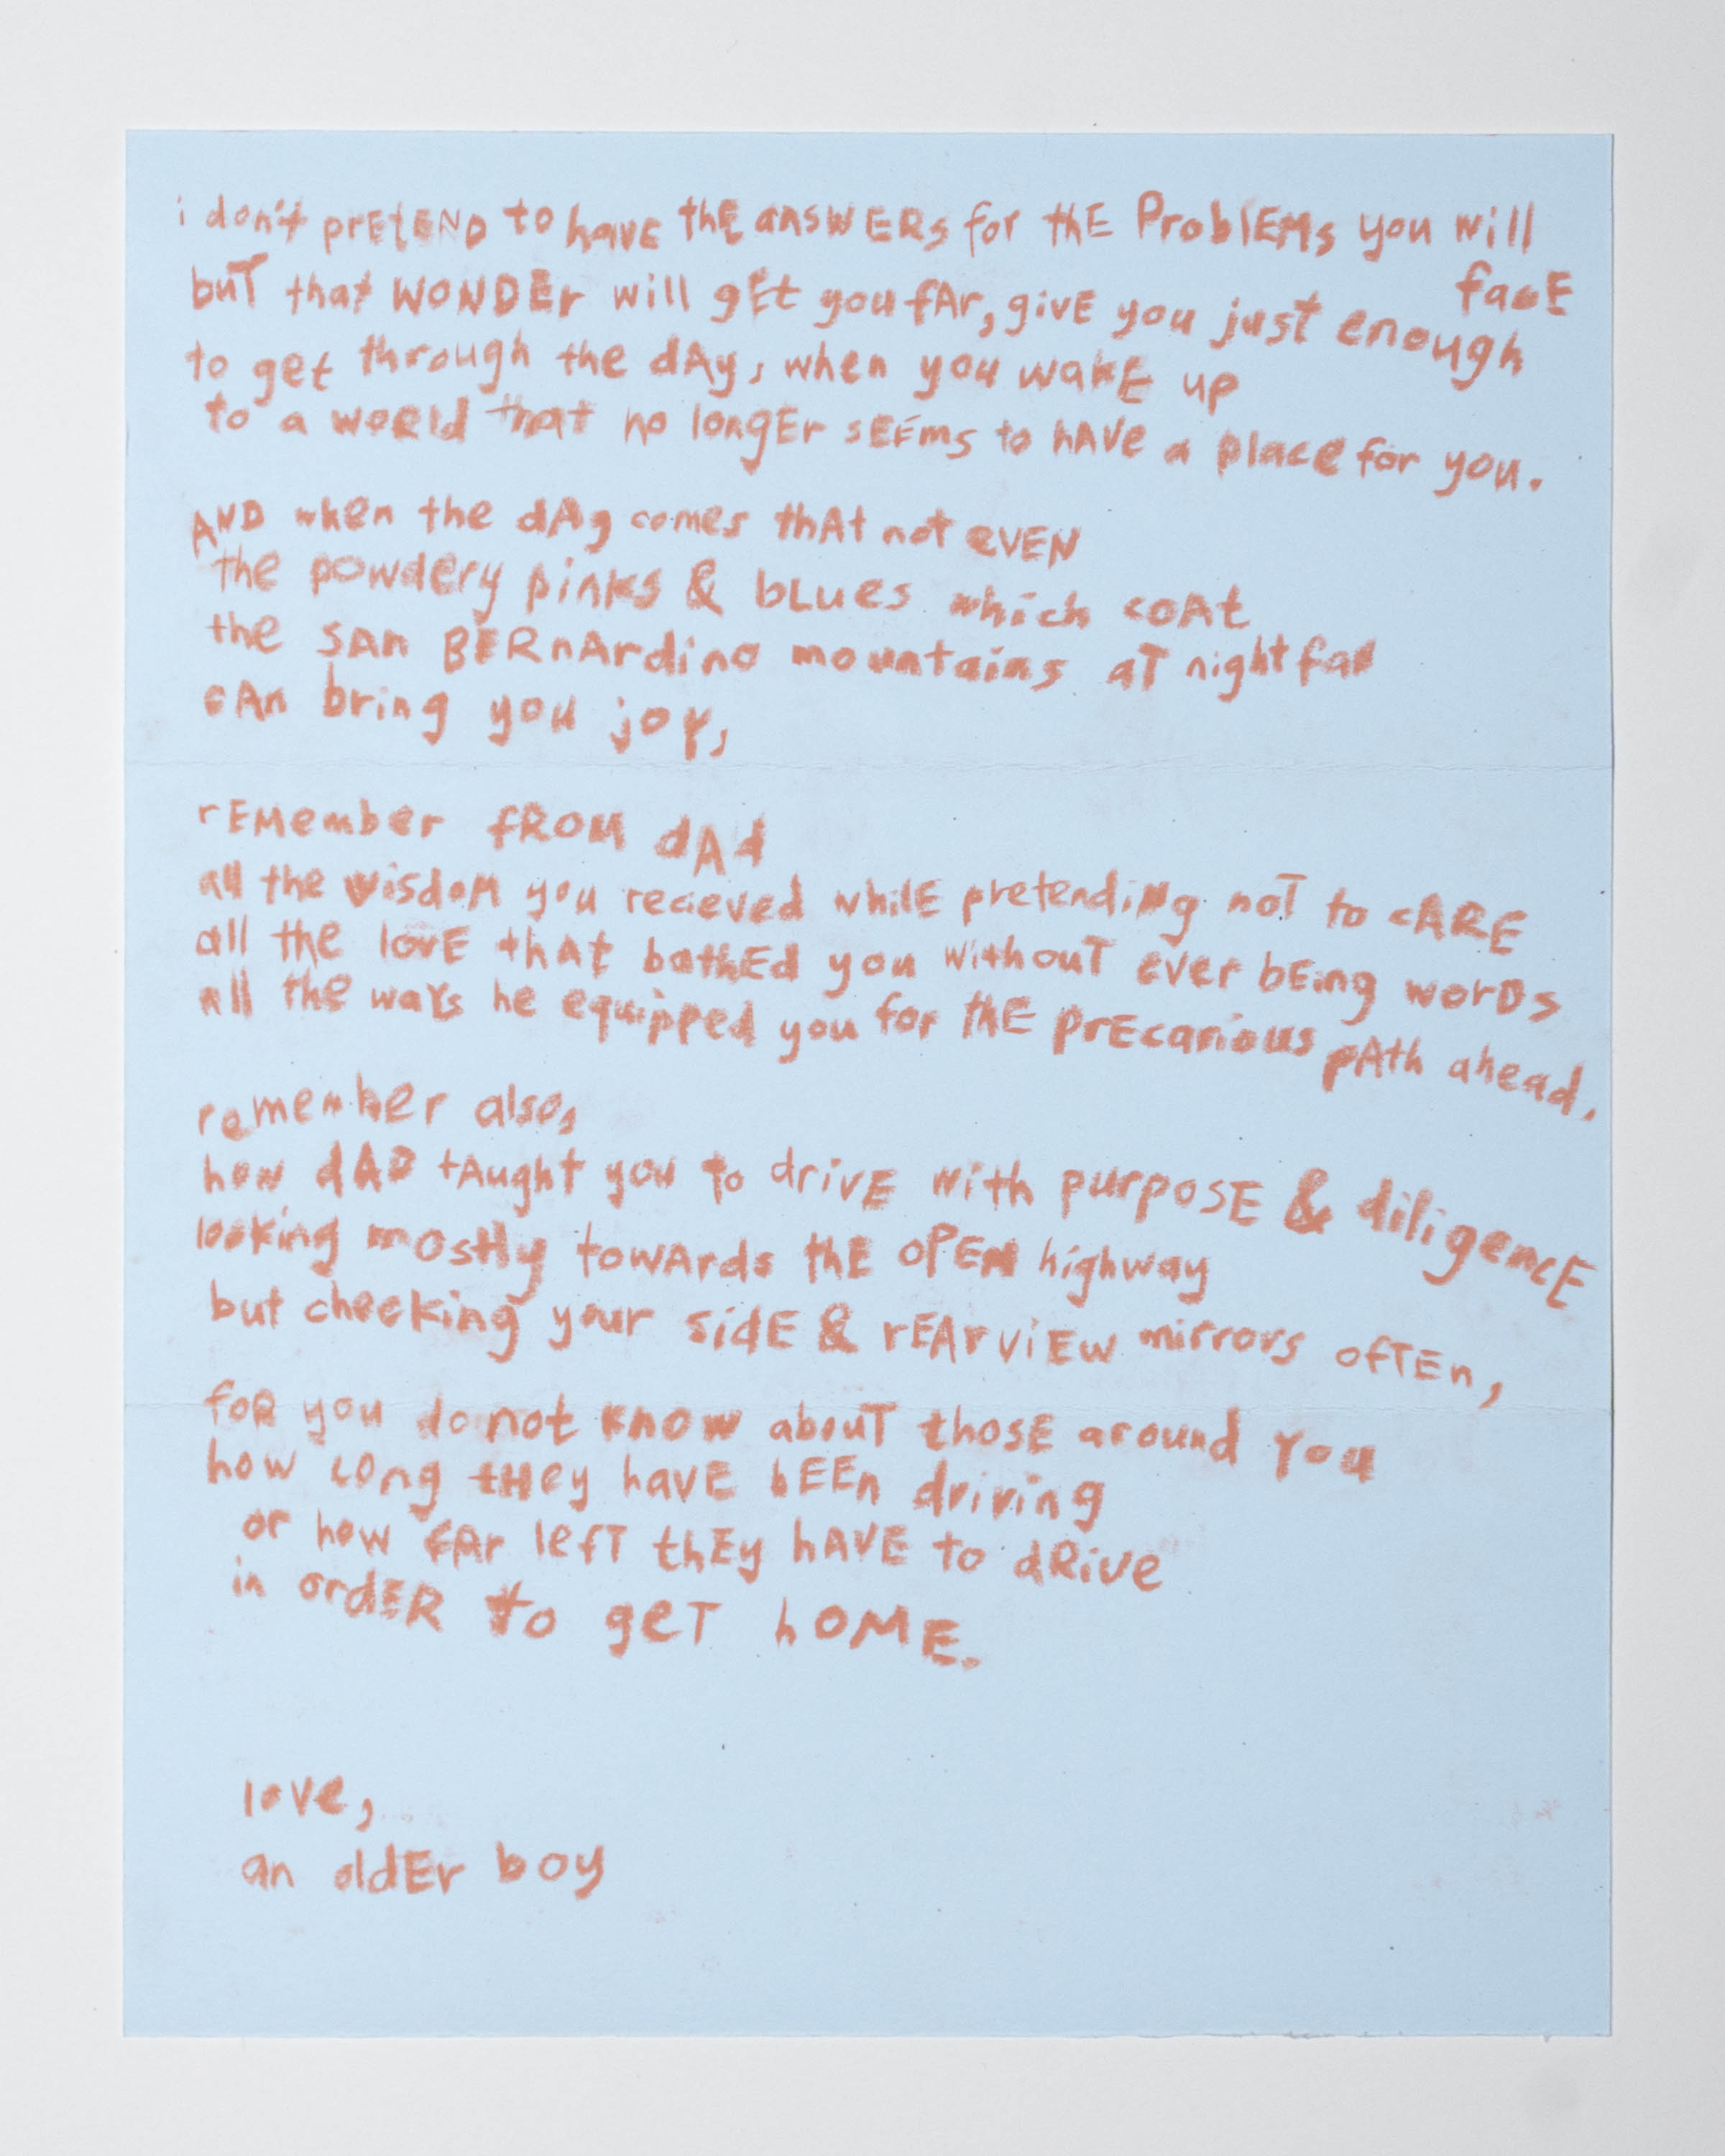 i don't pretEND to havE thE answERs for thE ProblEMs you will facE
buT that WONDEr will gEt you fAr, givE you just enough
to get through the dAy, when you wakE up
to a world that no longEr sEEms to hAVe a place for you.
AND when the dAy comes thAt not eVEN
the powdery pinks & bLues which coAt
the sAn BERnArdino mountains aT nightfall
cAn bring you joy,
rEMember fROM dAd
all the wisdoM you recieved whilE pretending noT to cARE
all the lovE thAt bathEd you withouT ever bEing worDs
all the waYs he equipped you for thE prEcarious pAth ahead.
remember also,
how dAD tAught you to drivE with purposE & diligencE
looking mostly towArds thE oPEN highway
but checking your sidE & rEArviEw mirrors ofTEn,
foR you do not know abouT thosE around You
how Long tHey havE bEEn driving
or how fAr lefT thEy hAVE to dRive
in ordER to geT hOME.
love,
an oldEr boy